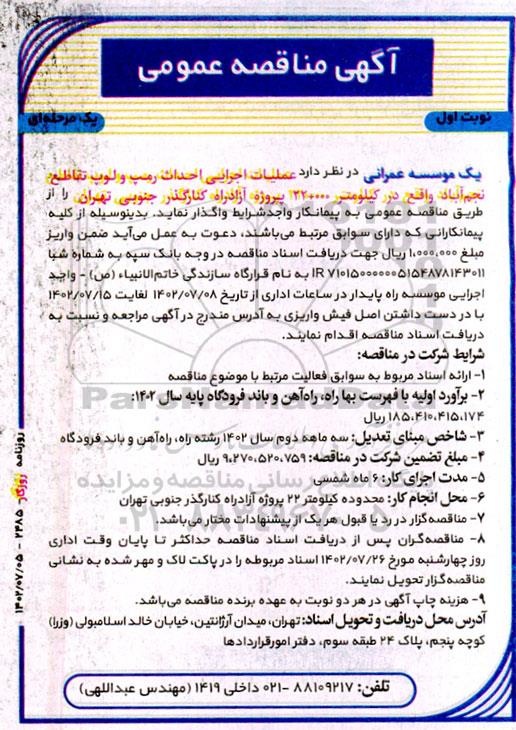 آگهی مناقصه عمومی
نوبت اول
یک مرحله‌ای
یک موسسه عمرانی در نظر دارد عملیات اجرایی احداث رمپ و لوپ تقاطع
نجم‌آباد واقع در کیلومتر ۲۲+۰۰۰ پروژه آزادراه کنارگذر جنوبی تهران را از
طریق مناقصه عمومی به پیمانکار واجدشرایط واگذار نماید. بدینوسیله از کلیه
پیمانکارانی که دارای سوابق مرتبط می‌باشند، دعوت به عمل می‌آید ضمن واریز
مبلغ ۱،۰۰۰،۰۰۰ ریال جهت دریافت اسناد مناقصه در وجه بانک سپه به شماره شبا
IR ۷۱۰۱۵۰۰۰۰۰۰۵۱۵۴۸۷۸۱۴۳۰۱۱ به نام قرارگاه سازندگی خاتم‌الانبیاء (ص) - واحد
اجرایی موسسه راه پایدار در ساعات اداری از تاریخ ۱۴۰۲/۰۷/۰۸ لغایت ۱۴۰۲/۰۷/۱۵
با در دست داشتن اصل فیش واریزی به آدرس مندرج در آگهی مراجعه و نسبت به
دریافت اسناد مناقصه اقدام نمایند.
شرایط شرکت در مناقصه:
۱- ارائه اسناد مربوط به سوابق فعالیت مرتبط با موضوع مناقصه
۲- برآورد اولیه با فهرست بها راه، راه‌آهن و باند فرودگاه پایه سال ۱۴۰۲:
۱۸۵،۴۱۰،۴۱۵،۱۷۴ ریال
۳- شاخص مبنای تعدیل: سه ماهه دوم سال ۱۴۰۲ رشته راه، راه‌آهن و باند فرودگاه
۴- مبلغ تضمین شرکت در مناقصه: ۹،۲۷۰،۵۲۰،۷۵۹ ریال
۵- مدت اجرای کار: ۶ ماه شمسی
۶- محل انجام کار: محدوده کیلومتر ۲۲ پروژه آزادراه کنارگذر جنوبی تهران
۷- مناقصه‌گزار در رد یا قبول هر یک از پیشنهادات مختار می‌باشد.
۸- مناقصه‌گران پس از دریافت اسناد مناقصه حداکثر تا پایان وقت اداری
روز چهارشنبه مورخ ۱۴۰۲/۰۷/۲۶ اسناد مربوطه را در پاکت لاک و مهر شده به نشانی
مناقصه‌گزار تحویل نمایند.
۹- هزینه چاپ آگهی در هر دو نوبت به عهده برنده مناقصه می‌باشد.
آدرس محل دریافت و تحویل اسناد: تهران، میدان آرژانتین، خیابان خالد اسلامبولی (وزرا)
کوچه پنجم، پلاک ۲۴ طبقه سوم، دفتر امور قراردادها
تلفن: ۸۸۱۰۹۲۱۷ -۰۲۱ داخلی ۱۴۱۹ (مهندس عبداللهی)
روزنامه روزگار ۲۴۸۵ - ۱۴۰۲/۰۷/۰۵